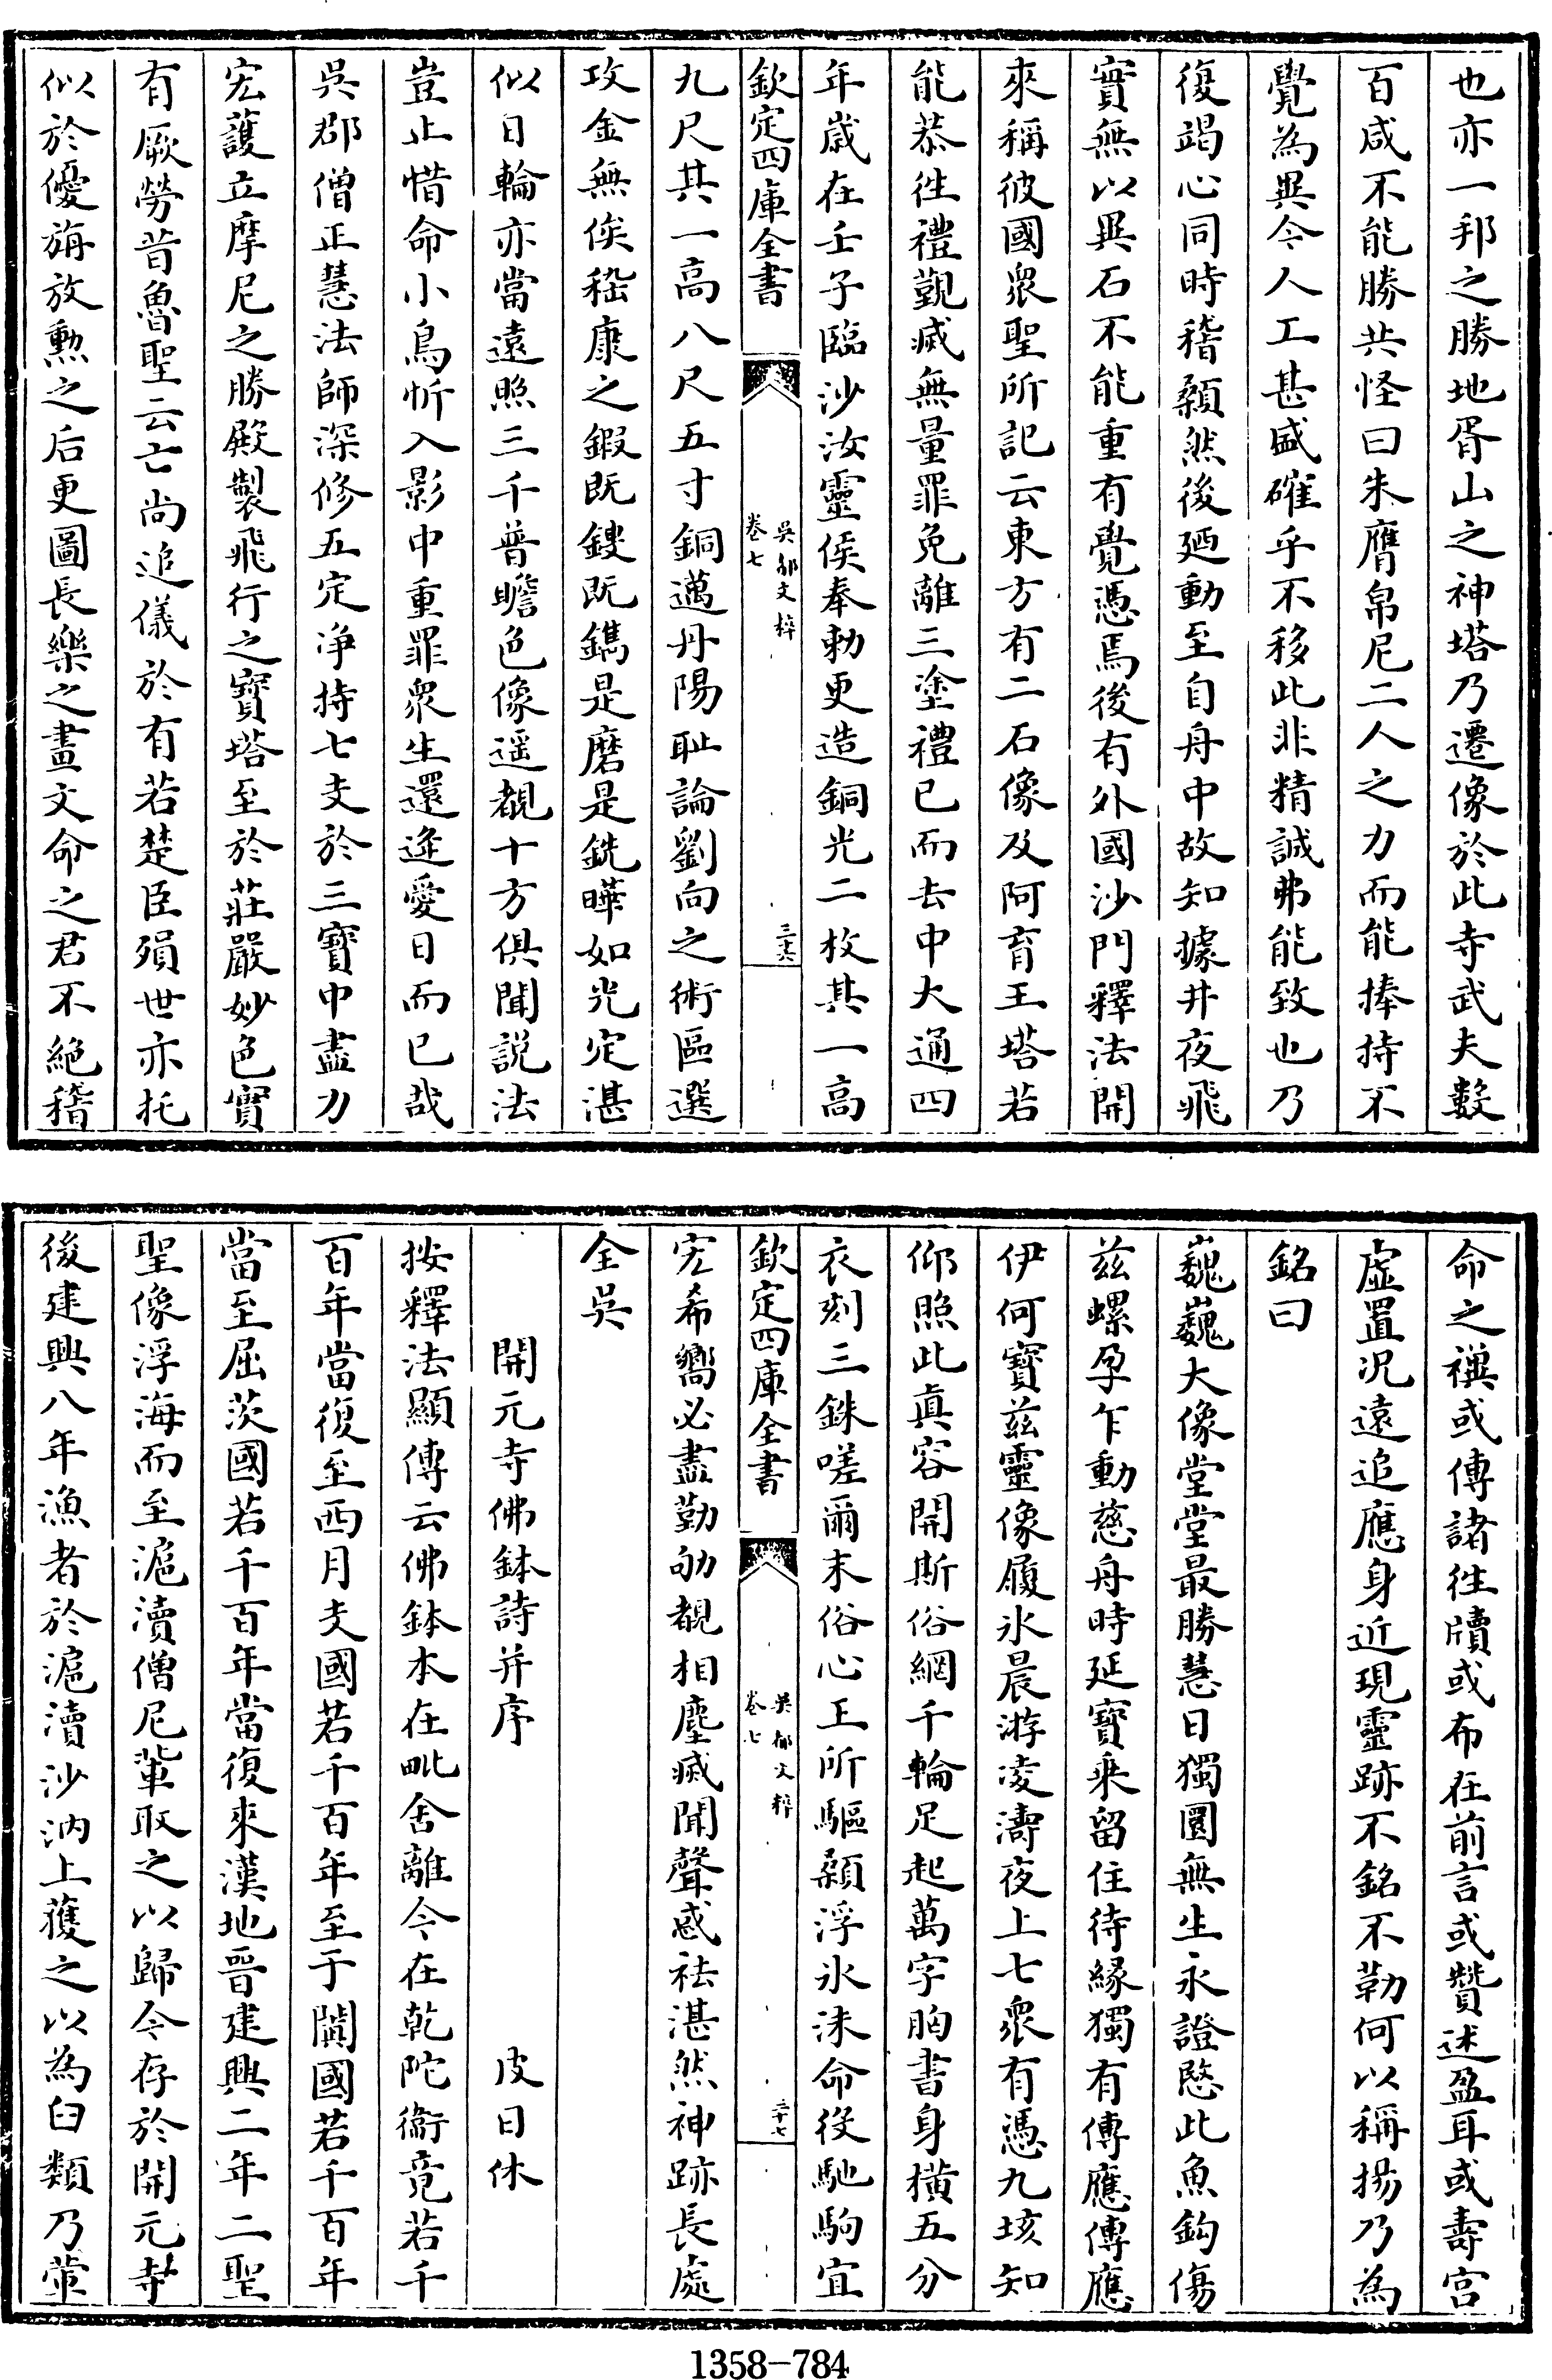 也亦一邦之勝地胥山之神塔乃遷像於此寺武夫數
百咸不能勝共怪曰朱膺帛尼二人之力而能捧持不
覺為異今人工甚盛確乎不移此非精誠弗能致也乃
復竭心同時稽顙然後廼動至自舟中故知據井夜飛
實無以異石不能重有覺憑焉後有外國沙門釋法開
來稱彼國衆聖所記云東方有二石像及阿育王塔若
能恭徃禮覲滅無量罪免離三塗禮已而去中大通四
年歳在壬子臨沙汝靈侯奉勅更造銅光二枚其一高
欽定四庫全書
吳都文粹
卷七
三十六
九尺其一高八尺五寸銅邁丹陽耻論劉向之術區選
攻金無俟嵇康之鍛既鏤既鐫是磨是銑曄如光定湛
似日輪亦當遠照三千普瞻色像遥覩十方俱聞説法
豈止惜命小鳥忻入影中重罪衆生還逢愛日而已哉
吳郡僧正慧法師深修五定净持七支於三寶中盡力
宏護立摩尼之勝殿製飛行之寶塔至於莊嚴妙色實
有厥勞昔魯聖云亡尚追儀於有若楚臣殞世亦托
似於優旃放勲之后更圖長樂之畫文命之君不絶稽
命之禩或傳諸徃牘或布在前言或贊述盈耳或壽宫
虚置况遠追應身近現靈跡不銘不勒何以稱揚乃為
銘曰
巍巍大像堂堂最勝慧日獨圓無生永證愍此魚鈎傷
兹螺孕乍動慈舟時延寶乘留住待緣獨有傳應傳應
伊何寶兹靈像履氷晨游凌濤夜上七衆有憑九垓知
仰照此真容開斯俗網千輪足起萬字胸書身横五分
衣刻三銖嗟爾末俗心王所驅顙浮氷沫命役馳駒宜
欽定四庫全書
吳都文粹
卷七
三十七
宏希嚮必盡勤劬覩相塵滅聞聲惑祛湛然神跡長處
全吳
開元寺佛鉢詩并序
皮日休
按釋法顯傳云佛鉢本在毗舍離今在乾陀衞竟若千
百年當復至西月支國若千百年至于闐國若千百年
當至屈茨國若千百年當復來漢地晉建興二年二聖
聖像浮海而至滬瀆僧尼輩取之以歸今存於開元寺
後建興八年漁者於滬瀆沙汭上獲之以為臼類乃葷
1358-784